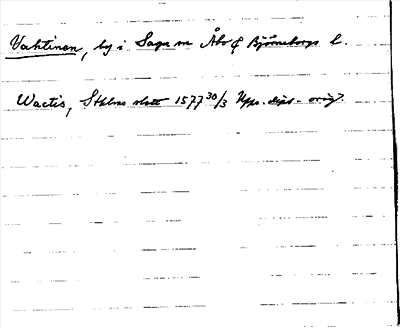 Vahtinen, by i Sagu sn Åbo & Björneborgs l.
Wactis, Sthlms slott 1577 30/3 Upps. dipl. orig.